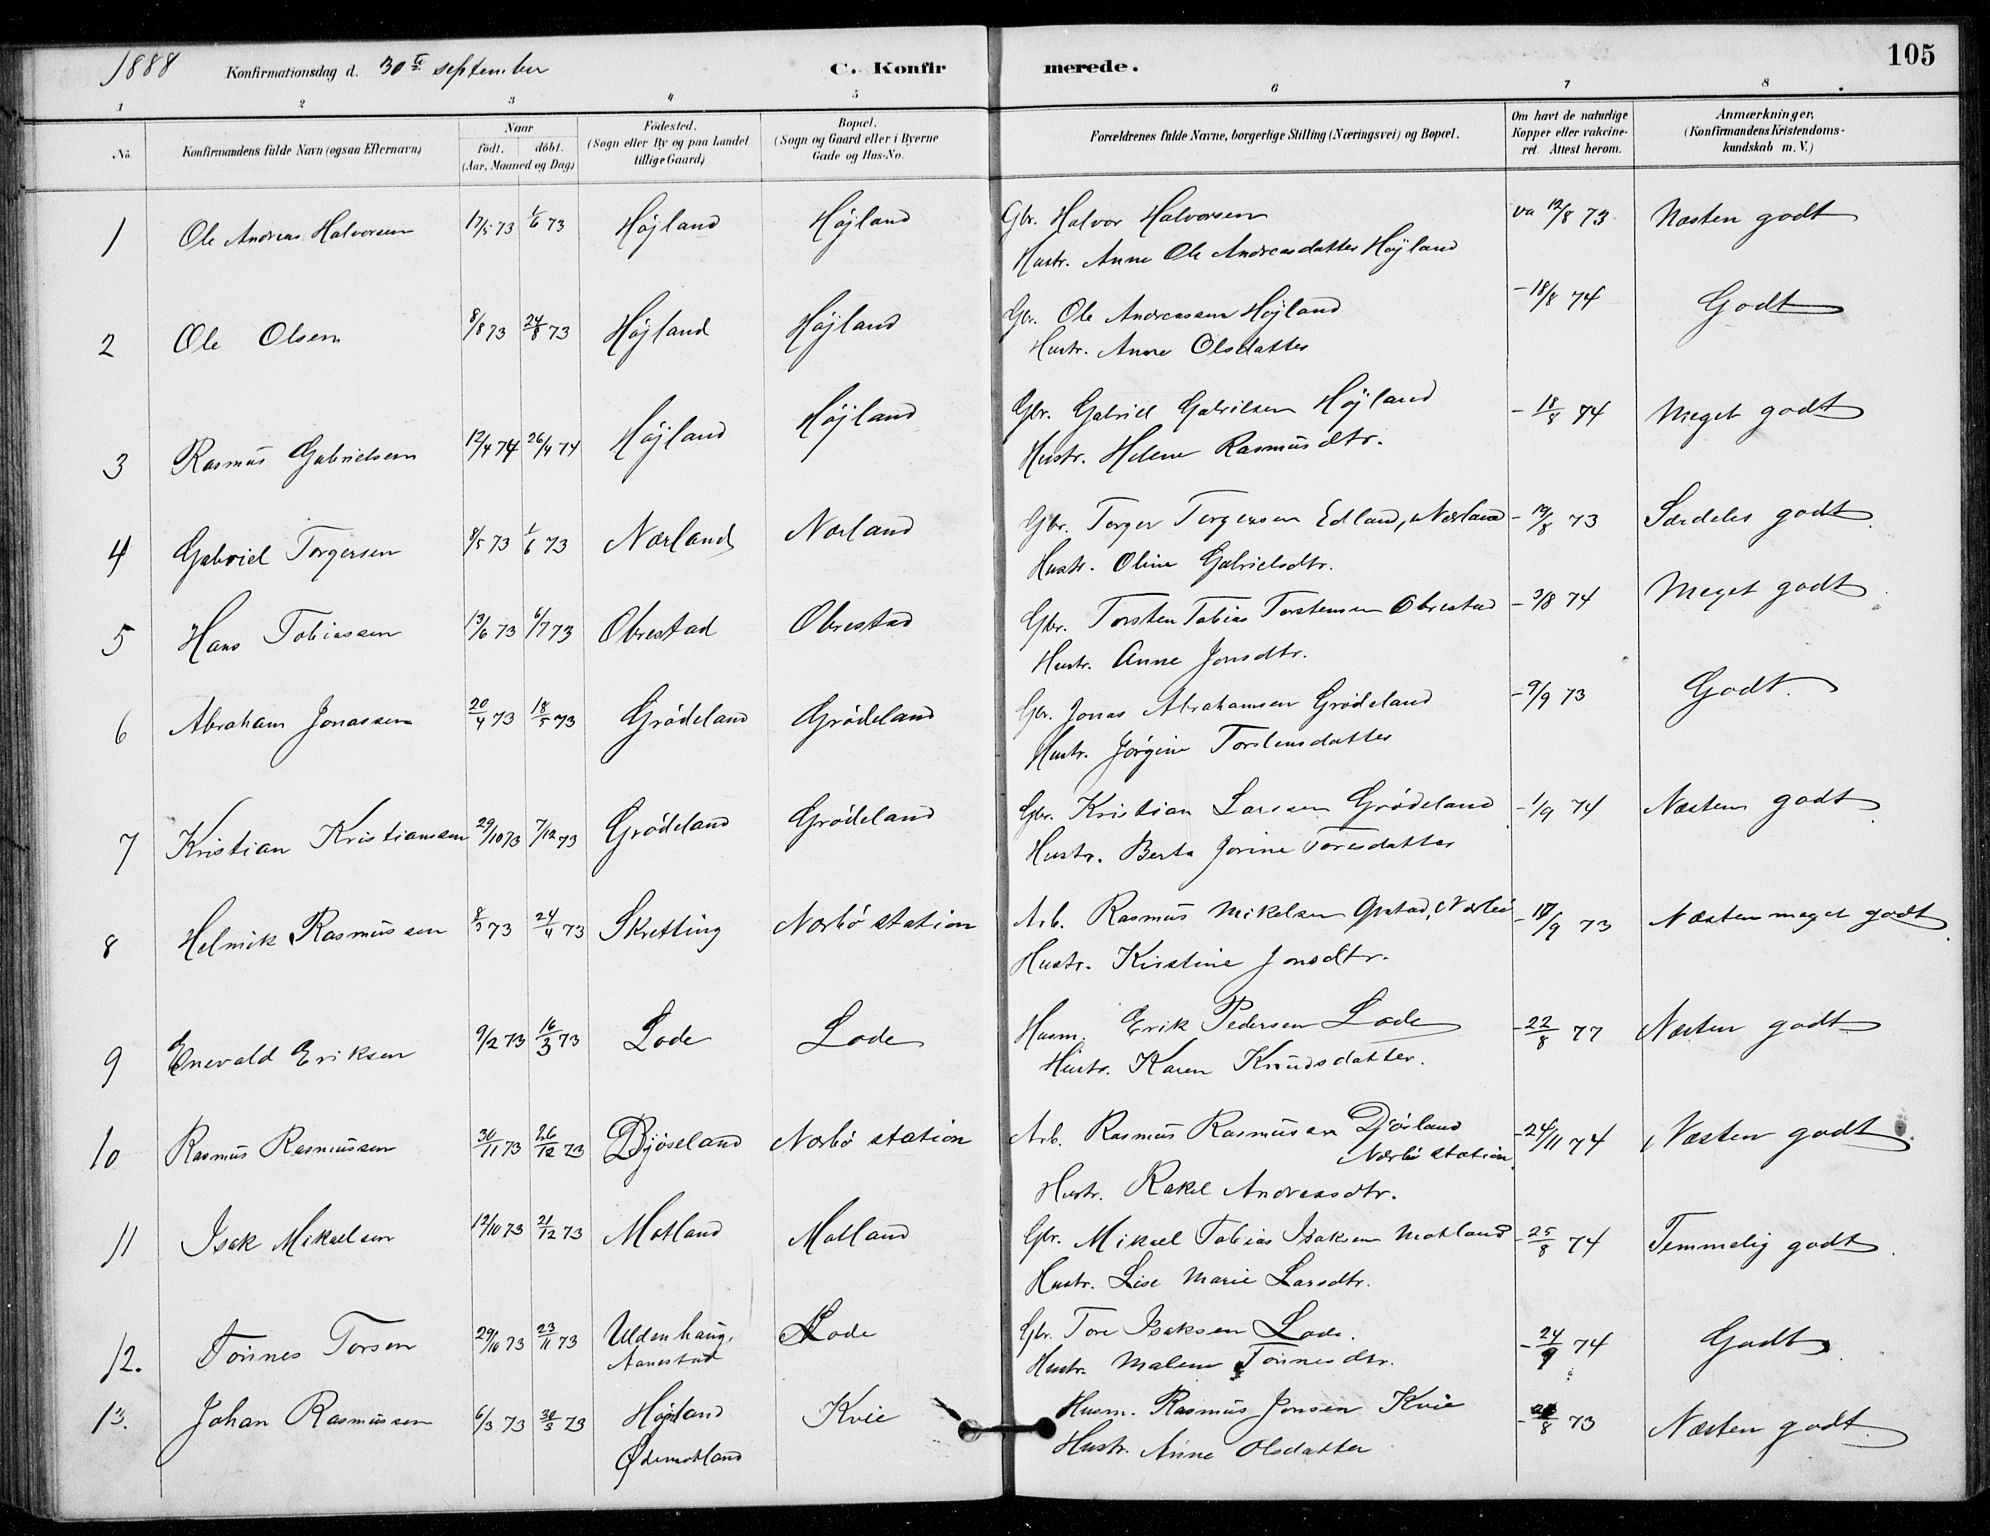 1888 Konfirmationsdag d. 30te september C. Konfirmerede. 105
1 2 3 4 5 6 7 8
No. Konfirmandens fulde Navn (ogsaa Efternavn) Naar födt. döbt. (Aar, Maaned og Dag) Födested. (Sogn eller By og paa Landet tillige Gaard) Bopæl. (Sogn og Gaard eller i Byerne Gade og Hus-No. Forældrenes fulde Navne, borgerlige Stilling (Næringsvei) og Bopæl. Om havt de naturlige Kopper eller vakcineret. Attest herom. Anmærkninger, (Konfirmandens Kristendomskundskab m. V.)
1 Ole Andreas Halvorsen 17/5 73 1/6 73 Højland Højland Gbr. Halvor Halvorsen va 12/8 73 Næsten godt
Hustr. Anne Ole Andreasdatter Højland
2 Ole Olsen 8/8 73 24/8 73 Højland Højland Gbr. Ole Andreassen Højland - 18/8 74 Godt
Hustr. Anne Olsdatter
3 Rasmus Gabrielsen 12/4 74 26/4 74 Højland Højland Gbr. Gabriel Gabrielsen Højland - 18/8 74 Meget godt
Hustr. Helene Rasmusdtr.
4 Gabriel Torgersen 8/5 73 1/6 73 Nærland Nærland Gbr. Torger Torgersen Edland, Nærland - 19/8 73 Særdeles godt
Hustr. Oline Gabrielsdtr.
5 Hans Tobiassen 13/6 73 6/7 73 Obrestad Obrestad Gbr. Torsten Tobias Torstensen Obrestad - 3/8 74 Meget godt
Hustr. Anne Jonsdtr.
6 Abraham Jonassen 20/4 73 18/5 73 Grødeland Grødeland Gbr. Jonas Abrahamsen Grødeland - 9/9 73 Godt.
Hustr. Jørgine Torstensdatter
7 Kristian Kristiansen 29/10 73 7/12 73 Grødeland Grødeland Gbr. Kristian Larsen Grødeland - 1/9 74 Næsten godt
Hustr. Berta Jorine Toresdatter
8 Helmik Rasmussen 73 24/4 73 Skretting Nærbø station Arb. Rasmus Mikelsen Opstad, Nærbø - /9 73 Næsten meget godt.
Hustr. Kirstine Jonsdtr.
9 Enevald Eriksen 9/2 73 16/3 73 Lode Lode Husm. Erik Pedersen Lode - 22/8 77 Næsten godt
Hustr. Karen Knudsdatter.
10 Rasmus Rasmussen 30/11 73 26/12 73 Djøseland Nærbø station Arb. Rasmus Rasmussen Djøsland - 24/11 74 Næsten godt.
Nærbø station.
Hustr. Rakel Andreasdtr.
11 Isak Mikaelsen 12/10 73 21/12 73 Motland Motland Gbr. Mikael Tobias Isaksen Motland - 25/8 74 Temmelig godt.
Hustr. Lise Marie Larsdtr.
12. Tønnes Torsen 29/10 73 23/11 73 Uldenhaug, Lode Gbr. Tore Isaksen Lode. - 24/9 74 Godt
Aanestad Hustr. Malene Tønnesdtr.
13. Johan Rasmussen 6/3 73 30/3 73 Højland Kvie Husm. Rasmus Jonsen Kvie - /8 73 Næsten godt.
Ødemotland Hustr. Anne Olsdatter